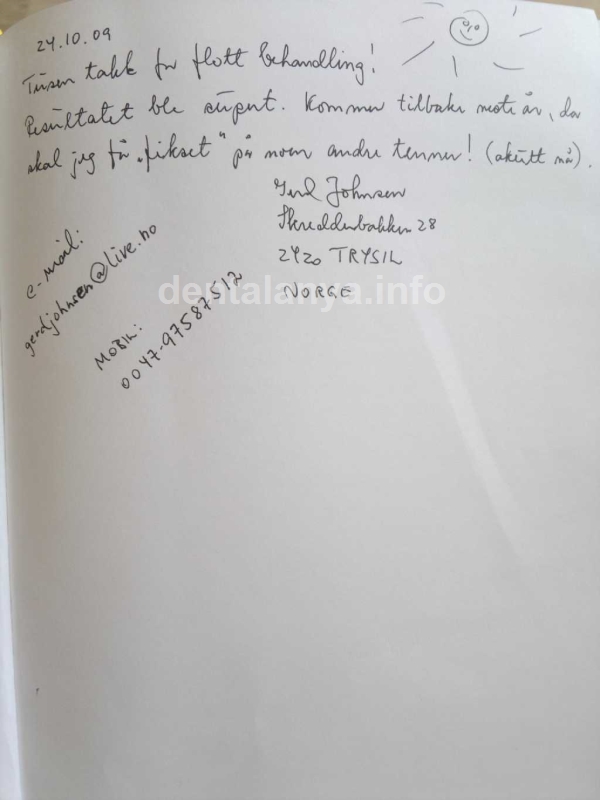 24.10.09
Tusen takk for flott behandling!
Resultatet ble supert. Kommer tilbake neste år, da
skal jeg få "fikset" på noen andre tenner! (akutt nå).
Gerd Johnsen
Skredderbakken 28
2420 TRYSIL
NORGE
e-mail:
gerdjohnsen@live.no
MOBIL:
0047-97587512
dentalanya.info